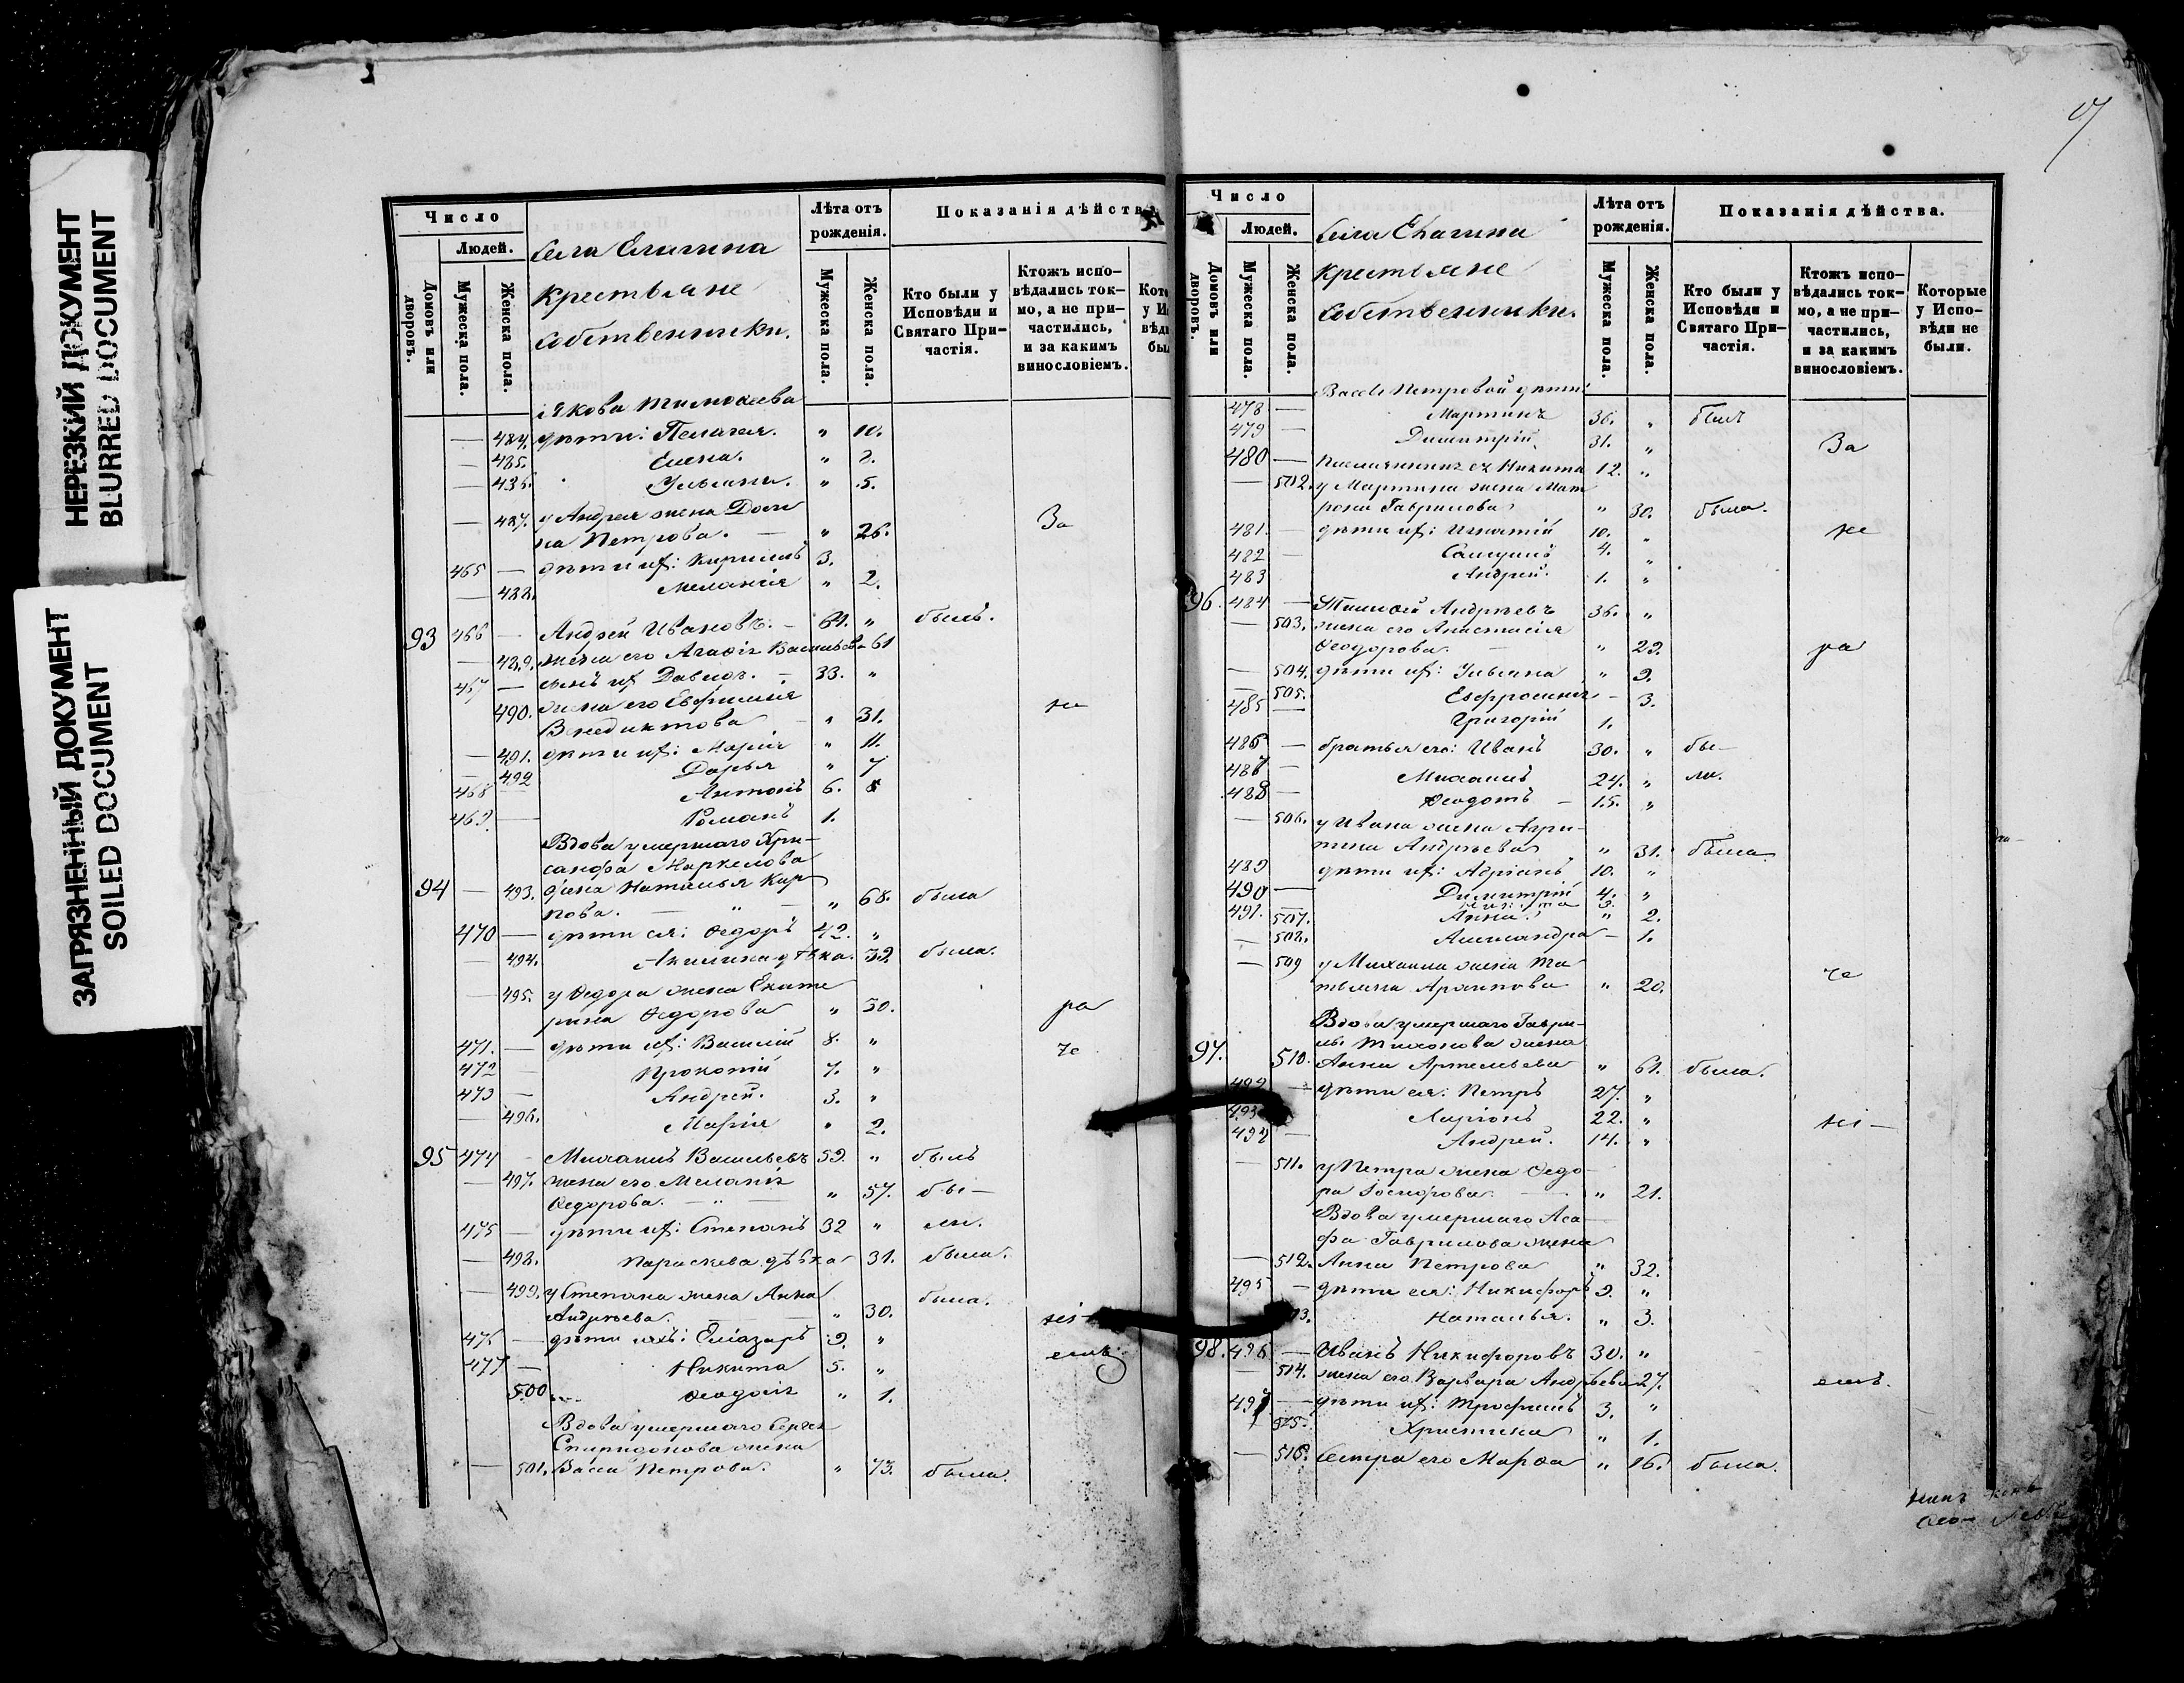 НЕРЕЗКИЙ ДОКУМЕНТ
BLURRED DOCUMENT
ЗАГРЯЗНЕННЫЙ ДОКУМЕНТ
SOILED DOCUMENT
Число
Людей.
Домовъ или дворовъ.
Мужеска пола.
Женска пола.
Села Елагина
крестьяне
собственники.
Лѣта отъ рожденія.
Мужеска пола.
Женска пола.
Показанія дѣйств
Кто были у Исповѣди и Святаго Причастія.
Ктожъ исповѣдались токмо, а не причастились, и за какимъ винословіемъ.
Якова Тимоѳеева
— 484. дѣти: Пелагея. " 10.
— 485. Елена. " 2.
— 486. Ульяна. " 5.
— 487. у Андрея жена
на Петрова. — " 26. За
465 — дѣти их: Кириллъ 3.
— 488. Меланія " 2.
93 466 — Андрей Ивановъ. — 64. " былъ.
— 489. жена его Агаѳія Васильева 61
467 — сынъ их Давидъ. — 33. "
490. жена его Евфимія не
Венедиктова — " 31.
— 491. дѣти их: Марія " 11.
— 492 Дарья " 7
468 — Антонъ 6.
469. — Романъ 1.
Вдова умершаго Хри-
санфа Маркелова
94 — 493. жена Наталья Кар-
пова. — " — " 68. была
470 — дѣти ея: Ѳедоръ 42. "
— 494. Акилина дѣвка. 39. была.
— 495. у Ѳедора жена Екате
рина Ѳедорова " 30. ра
471. — дѣти их: Василій 8. " че
472 — Прокопій 7. "
473 — Андрей. 3. "
— 496. Марія " 2.
95 474 — Михаилъ Васильевъ 59. " былъ
— 497. жена его Меланія
Ѳедорова. — " — " 57. бы —
475 — дѣти их: Степанъ 32 " ли.
— 498. Параскева дѣвка 31. была.
— 499. у Степана жена Анна
Андреева. " 30. была. ні-
476 — дѣти ихъ: Еліазаръ 9. "
477 — Никита 5. " емъ.
500 Ѳеодосія " 1.
Вдова умершаго Сергея
Спиридонова жена
— 501. Васса Петрова. " 73. была.
Число
Людей.
Домовъ или дворовъ.
Мужеска пола.
Женска пола.
Села Елагина
крестьяне
собственники.
Лѣта отъ рожденія.
Мужеска пола.
Женска пола.
Показанія дѣйства.
Кто были у Исповѣди и Святаго Причастія.
Ктожъ исповѣдались токмо, а не причастились, и за какимъ винословіемъ.
Которые у Исповѣди не были.
Вассы Петровой дѣти
478 — Мартинъ 36. " былъ
479 — Димитрій 31. " За
480 — племянникъ ея Никита 12. "
— 502. у Мартина жена Мат
рона Гаврилова " 30. была.
481 — дѣти их: Игнатій 10. " не
482 — Самуилъ 4. "
483 Андрей. 1. "
96. 484 — Тимоѳей Андреевъ 36. "
— 503. жена его Анастасія
Ѳеодорова. — " 29. ра
— 504. дѣти их: Ульяна " 9.
— 505. Евфросинія — 3.
485 — Григорій 1.
486 — братья его: Иванъ 30. " бы—
487 — Михаилъ 24. " ли.
488 — Ѳеодотъ — 15. "
— 506. у Ивана жена Агри-
пина Андреева " 31. была
489 дѣти их: Адріанъ 10. "
490 — Димитрій 4. "
491. 3.
507. Анна. " 2.
— 508. Александра — 1.
— 509 у Михаила жена Та
тьяна Архипова " 20. че
Вдова умершаго Гаври-
лы Тихонова жена
97. 510. Анна Артемьева " 61. была.
492 — дѣти ея: Петръ 27. "
493 Ларіонъ 22. " ні—
494 — Андрей. 14. "
— 511. у Петра жена Ѳедо-
ра " 21.
Вдова умершаго Аса-
фа Гаврилова жена
— 512. Анна Петрова " 32.
495 — дѣти ея: Никифоръ 9. "
13. Наталья. " 3.
98. 496 — Иванъ Никифоровъ 30. "
— 514. жена его Варвара Андреева 27. емъ.
497 — дѣти их: Трофимъ 3. "
515. Христина " 1.
— 516. Сестра его Марѳа " 16. была.